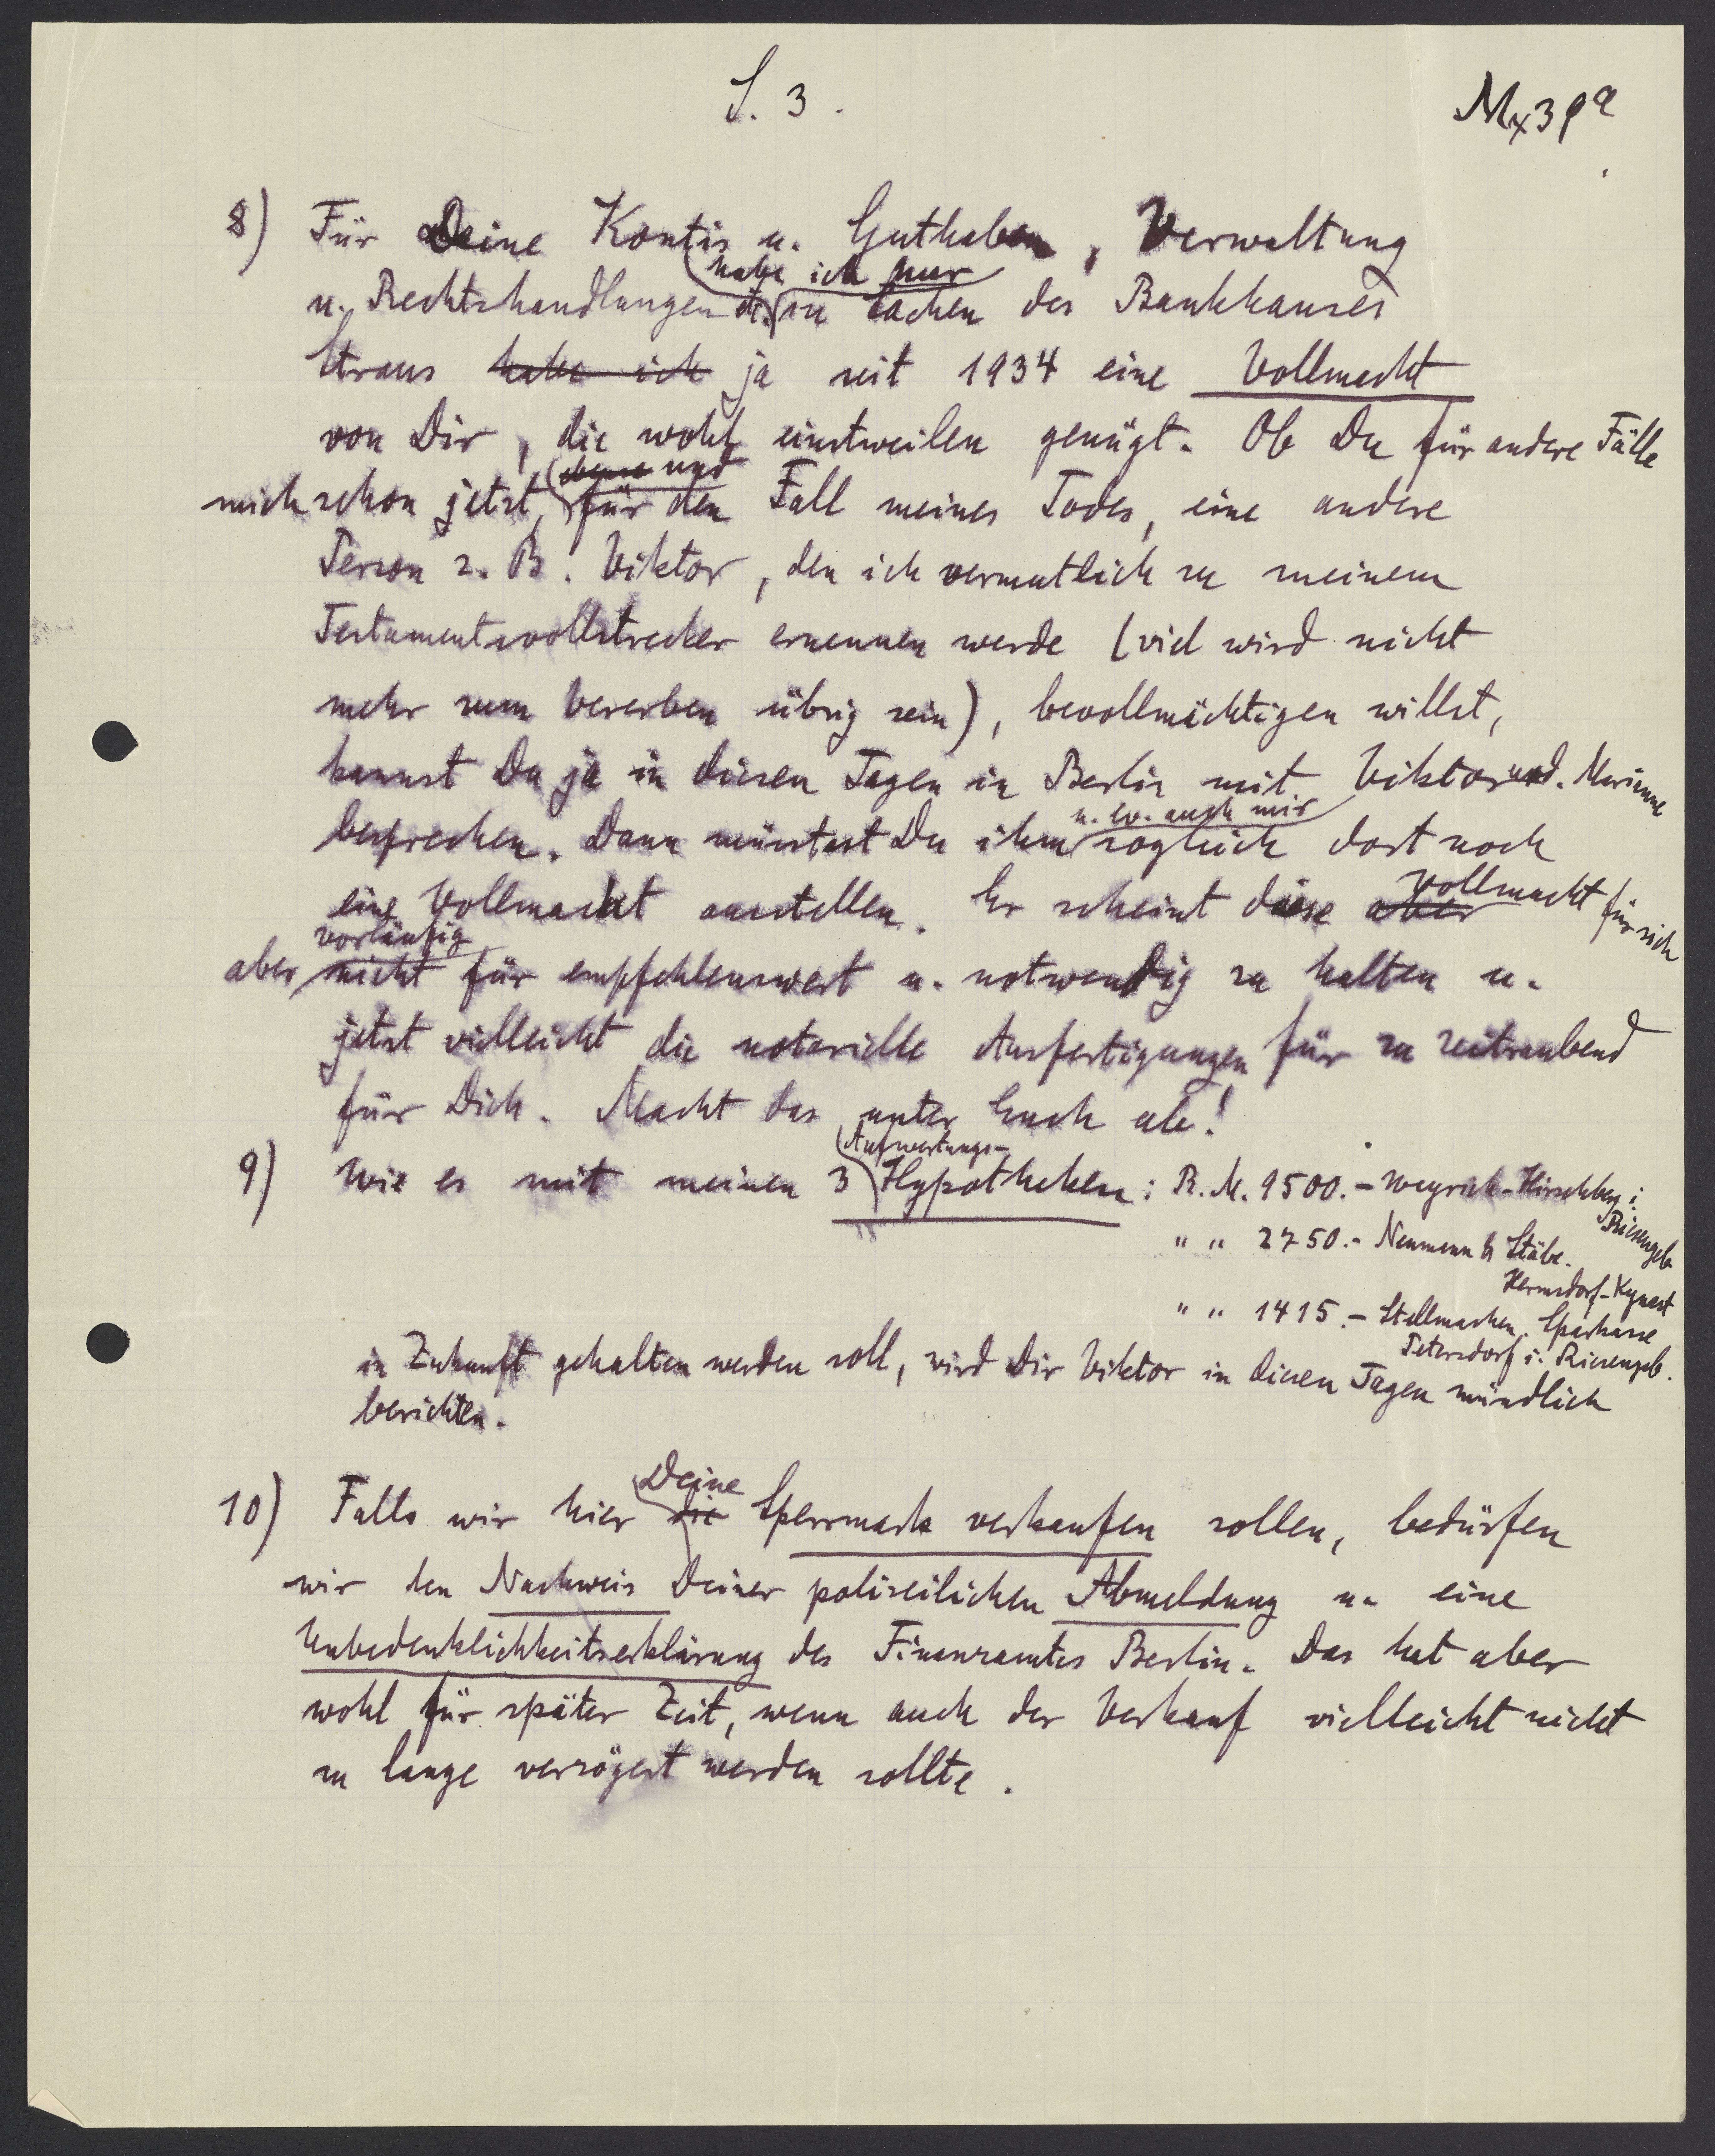 S. 3.
8) Für Deine Kontis u. Guthaben, Verwaltung
habe ich nur
u. Rechtshandlungen in Sachen des Bankhauses
Straus habe ich ja seit 1934 eine Vollmacht
von Dir, die wohl einstweilen genügt. Ob Du für andere Fälle
und
mich schon jetzt, für den Fall meines Todes, eine andere
Person z. B. Viktor, den ich vermutlich zu meinem
Testamentsvollstrecker ernennen werde (viel wird nicht
mehr zum Vererben übrig sein), bevollmächtigen willst,
kannst Du ja in diesen Tagen in Berlin mit Viktor und Marianne
u. ev. auch mir
besprechen. Dann müsstest Du ihm sogleich dort noch
Vollmacht für sich
eine Vollmacht ausstellen. Er scheint diese aber
vorläufig
aber nicht für empfehlenswert u. notwendig zu halten u.
jetzt vielleicht die notarielle Ausfertigungen für zu zeitraubend
für Dich. Macht das unter Euch ab!
Aufwertungs-
9) Wie es mit meinen 3 Hypotheken: R. M. 9500.- Weyrich-Hirschberg i. Riesengeb.
" " 2750.- Neumann & Stäbe. Hermsdorf-Kynast
" " 1415.- Stellmachen. Sparkasse Petersdorf i. Riesengeb.
in Zukunft gehalten werden soll, wird Dir Viktor in diesen Tagen mündlich
berichten.
Deine
10) Falls wir hier die Sperrmark verkaufen sollen, bedürfen
wir den Nachweis Deiner polizeilichen Abmeldung u. eine
Unbedenklichkeitserklärung des Finanzamtes Berlin. Das hat aber
wohl für später Zeit, wenn auch der Verkauf vielleicht nicht
zu lange verzögert werden sollte.